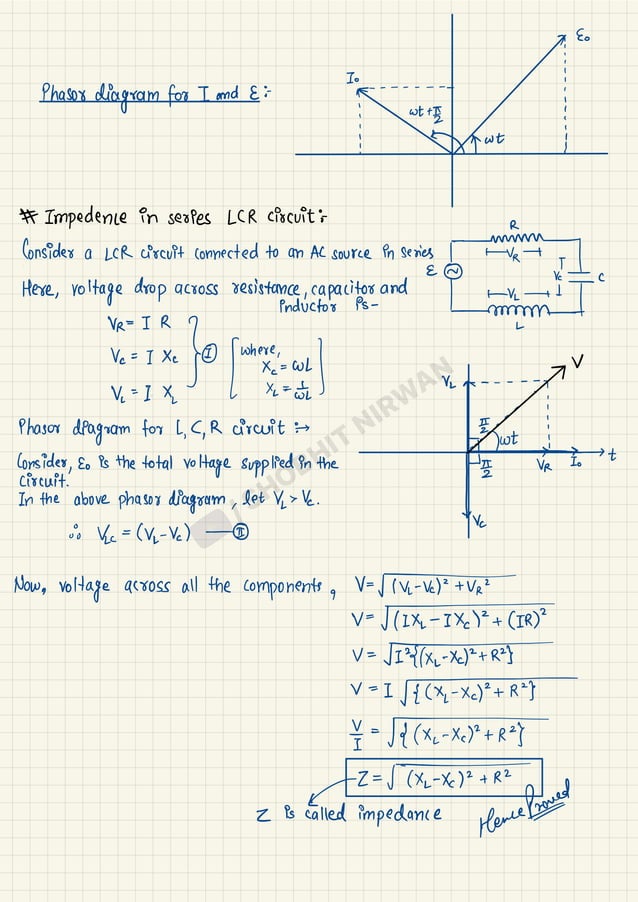 Phasor diagram for I and ε:-
I₀
ε₀
ωt+π/2
ωt
# Impedence in series LCR circuit:-
Consider a LCR circuit connected to an AC source in series
Here, voltage drop across resistance, capacitor and
inductor is-
V_R = I R
V_C = I X_C
V_L = I X_L
I
where,
X_C = ωL
X_L = 1/ωL
R
V_R
ε
V_C
C
V_L
L
Phasor diagram for L, C, R circuit :→
Consider, ε₀ is the total voltage supplied in the
circuit.
In the above phasor diagram, let V_L > V_C.
∴ V_LC = (V_L-V_C) — II
V_L
V
π/2
ωt
π/2
V_R
I₀
t
V_C
SHOBHIT NIRWAN
Now, voltage across all the components,
V = √(V_L-V_C)² + V_R²
V = √(IX_L - IX_C)² + (IR)²
V = √I²{(X_L-X_C)² + R²}
V = I √{(X_L-X_C)² + R²}
V/I = √{(X_L-X_C)² + R²}
Z = √(X_L-X_C)² + R²
Z is called impedance
Hence Proved